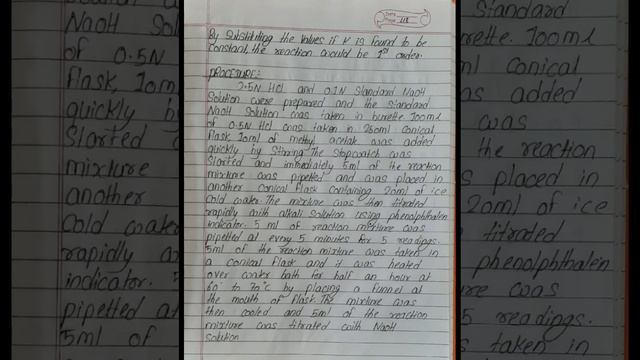 Date
Page 118
By Substituting the values if K is found to be
constant, the reaction would be 1st order.
PROCEDURE:
2.5N HCl and 0.1N Standard NaOH
Solution were prepared and the standard
NaOH Solution was taken in burette 100ml
of 0.5N HCl was taken in 250ml conical
flask 10ml of methyl acetate was added
quickly by stirring The stopwatch was
started and immediately 5ml of the reaction
mixture was pipetted and was placed in
another conical flask containing 20ml of ice
cold water. The mixture was then titrated
rapidly with alkali solution using phenolphthalen
indicator. 5 ml of reaction mixture was
pipetted at every 5 minutes for 5 readings.
5ml of the reaction mixture was taken in
a conical flask and it was heated
over water bath for half an hour at
60° to 70°c by placing a funnel at
the mouth of flask. The mixture was
then cooled and 5ml of the reaction
mixture was titrated with NaOH
solution